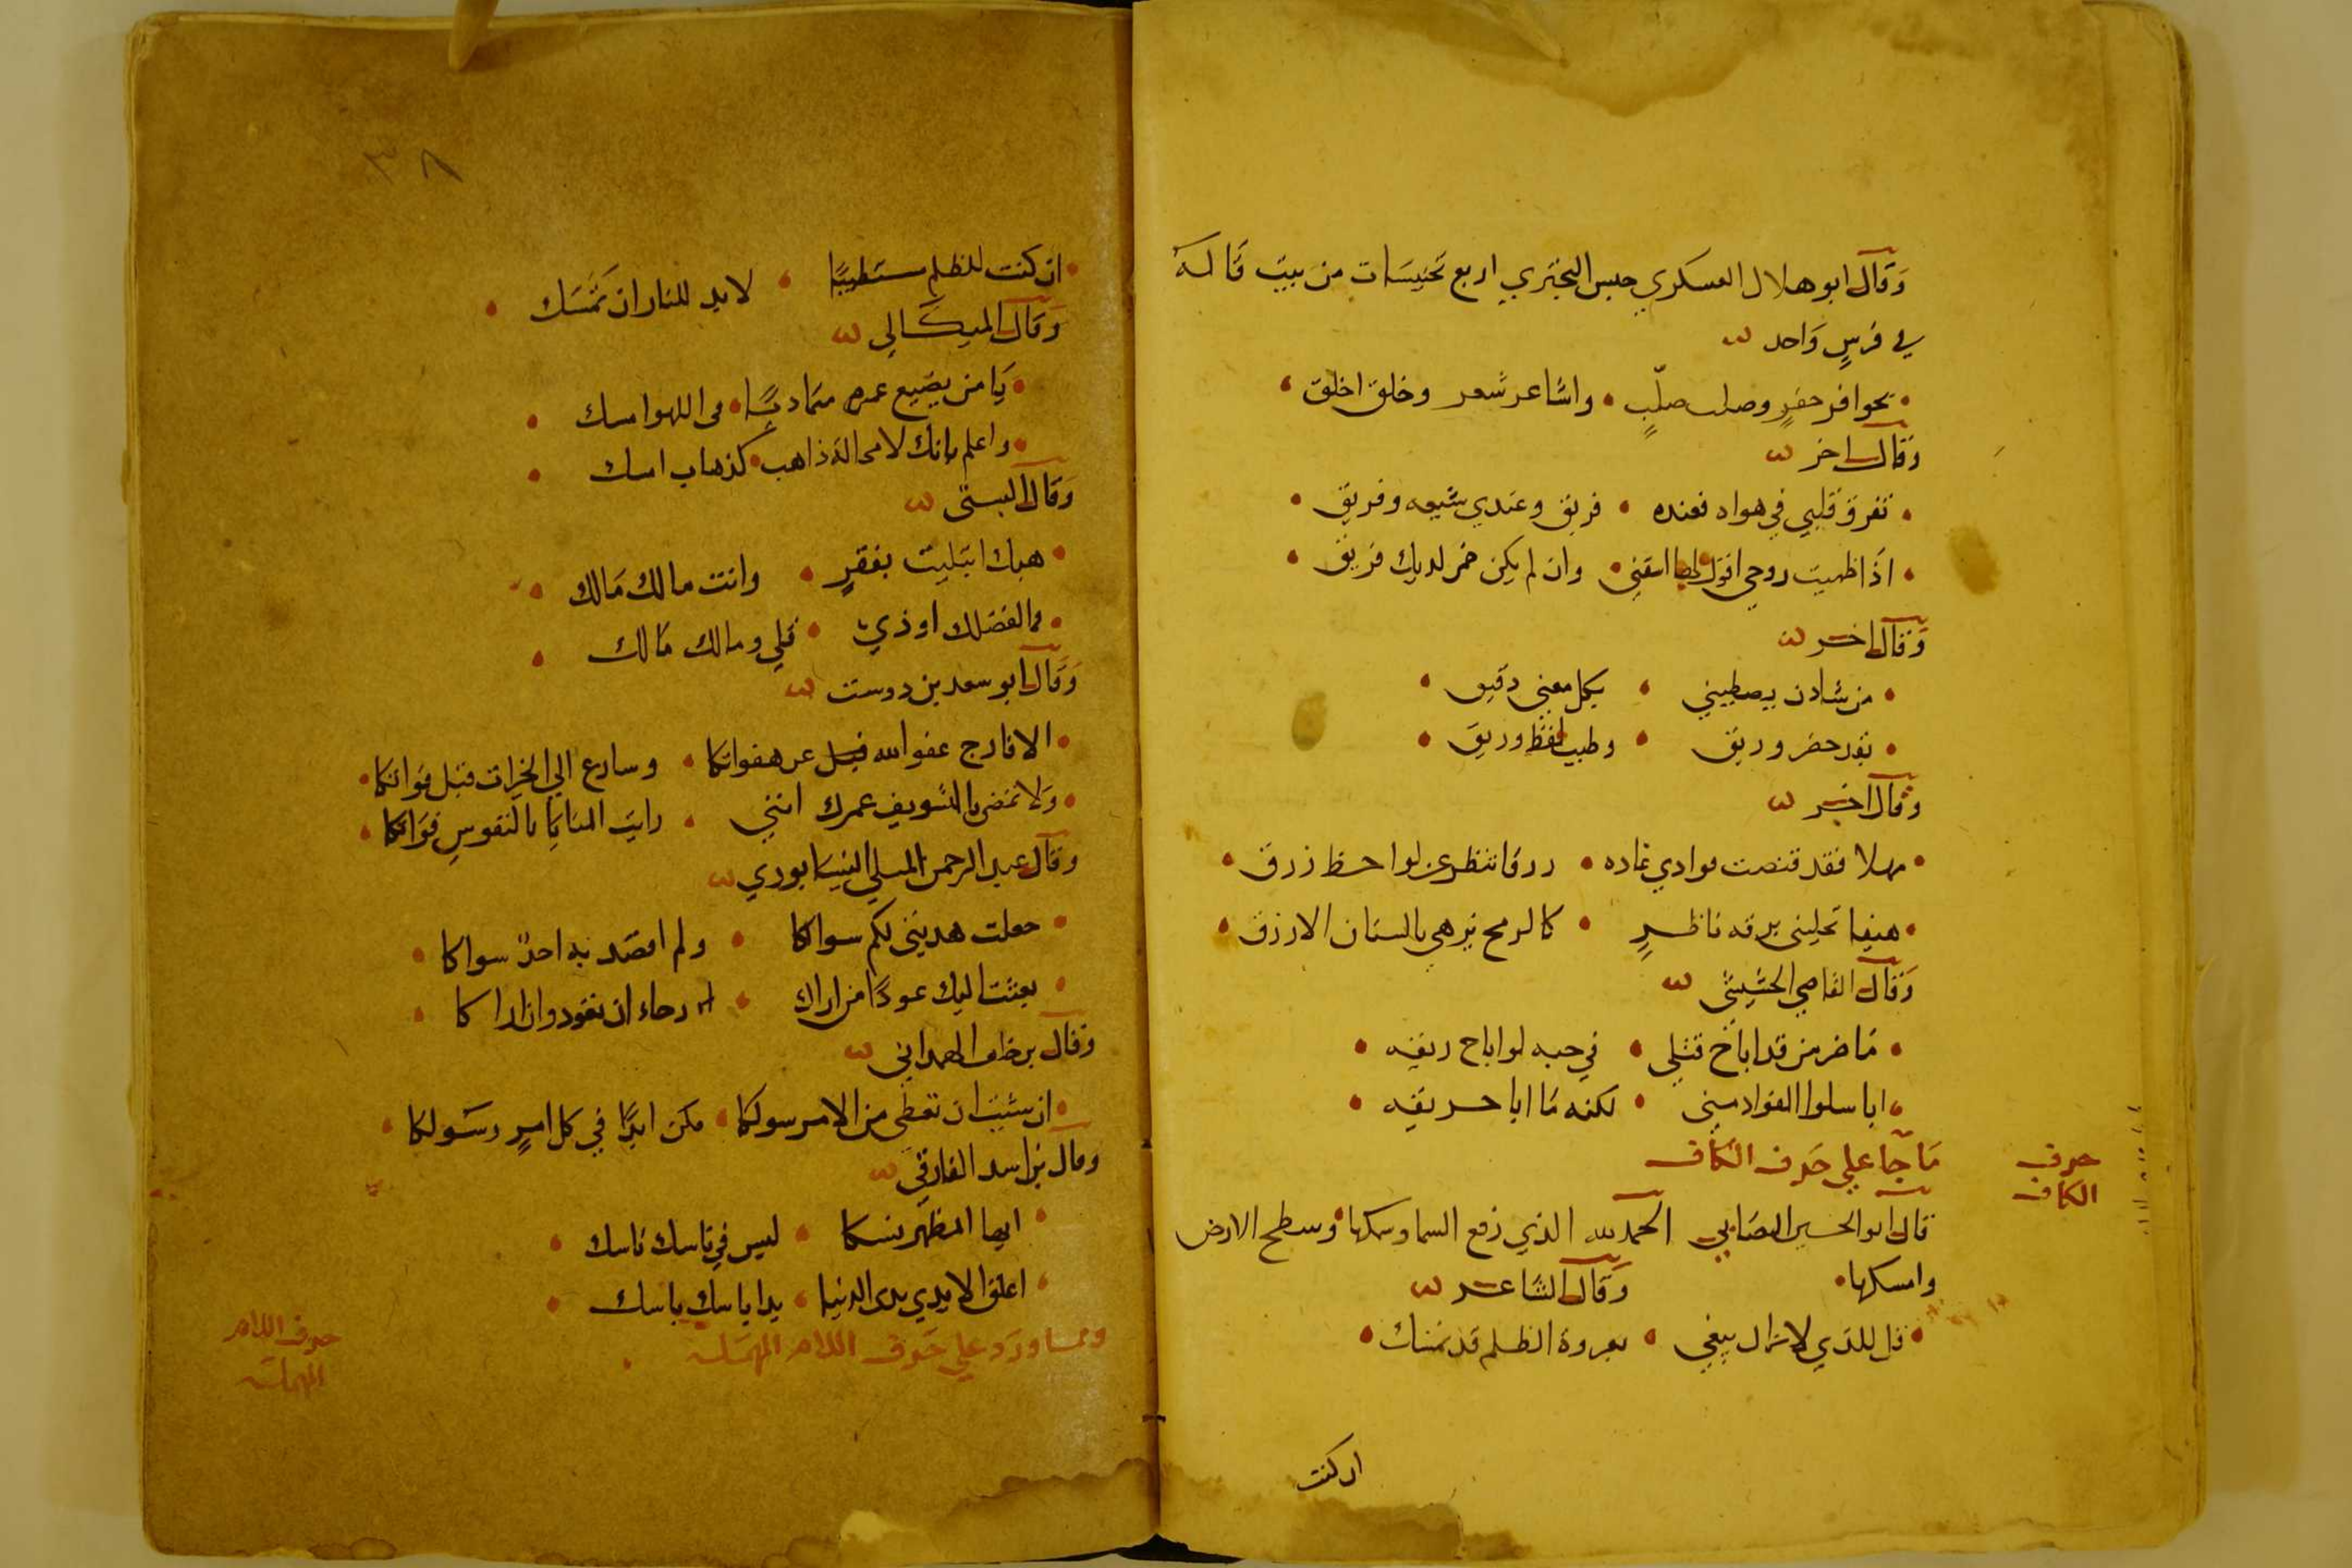 وقال ابو هلال العسكري جنس البحتري اربع تجنيسات من بيت قاله
في فرس واحد
بحوافر حفر وصلب صلب • واشاعر شعر وخلق اخلق
وقال اخر
تفرق قلبي في هواه فعنده • فريق وعندي شيعه وفريق
اذا ظميت روحي اقول لها اسقني • وان لم يكن خمر لديك فريق
وقال اخر
من شادن يصطبيني • بكل معنى دقيق
بقد خضر وريق • وطيب لفظ وريق
وقال اخر
مهلا فقد قنصت فوادي غاده • زرقا تنظر عن لواحظ زرق
هيفا تحليني بزرقه ناظر • كالرمح يزهي بالسنان الازرق
وقال القاضي
ما ضر من قد اباح قتلي • في حبه لو اباح ريقه
ايا سلوا الفواد مني • لكنه ما ابا حريقه
ما جا علي حرف الكاف
حرف
الكاف
قال ابو الحسين الصابي الحمد لله الذي رفع السما وسمكها وسطح الارض
وامسكها • وقال الشاعر
قل للذي لا يزال يبغي • بعروة الظلم قد تمسك
ان كنت
٣٨
ان كنت للظلم مستطيبا • لا بد للنار ان تمسك
وقال الميكالي
يا من يضيع عمره متماديا • في اللهو امسك
واعلم بانك لا محالة ذاهب • كذهاب امسك
وقال البستي
هبك ابتليت بفقر • وانت مالك مالك
قلي ومالك مالك
وقال ابو سعد بن دوست
الا فارج عفو الله عن هفواتكا • وسارع الي الخيرات قبل فواتكا
ولا تمض بالتسويف عمرك انني • رايت المنايا بالنفوس فواتكا
وقال عبد الرحمن النيسابوري
جعلت هديتي لكم سواكا • ولم اقصد به احدا سواكا
بعثت اليك عودا من اراك • رجاء ان نعود وان اراكا
وقال بن خلف الهمداني
ان شيت ان تعطي من الامر سولكا • فكن ابدا في كل امر رسولكا
وقال بن اسد الفارقي
ايها المظهر نسكا • ليس في ناسك ناسك
اعلق الايدي بدى الدنيا • يدا ياسك باسك
ومما ورد علي حرف اللام المهمله
حرف اللام
المهمله